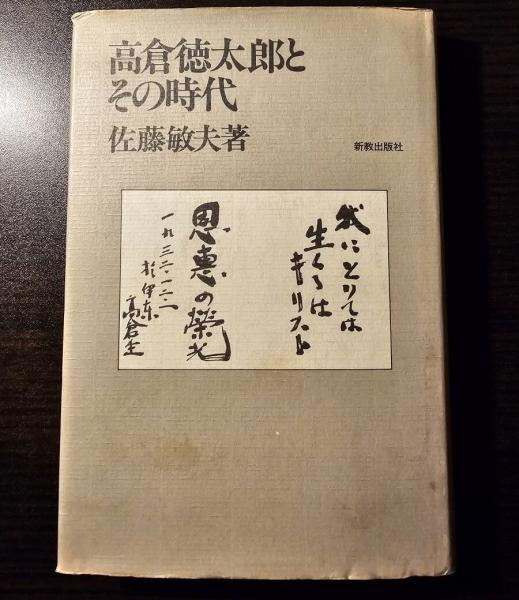 高倉徳太郎と
その時代
佐藤敏夫著
新教出版社
我にとりては
生くるは
キリスト
恩恵の栄光
一九三二・一二・一
於伊東
高倉生